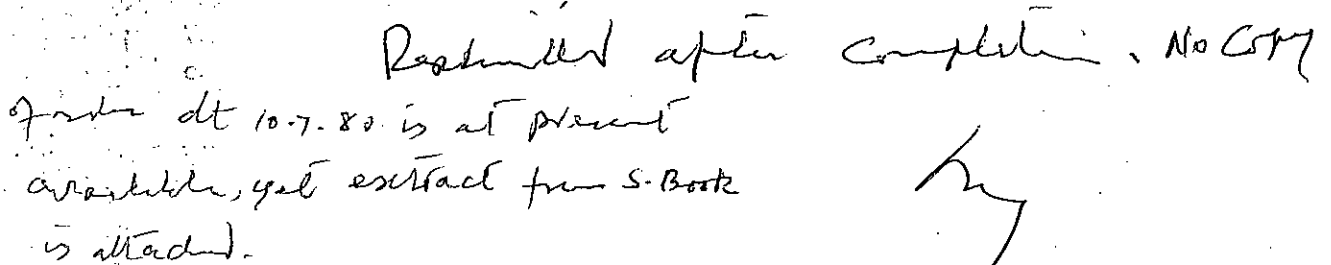 Resubmitted after completion. No Copy
of order dt 10.7.80 is at present
available, yet extract from S.Book
is attached.